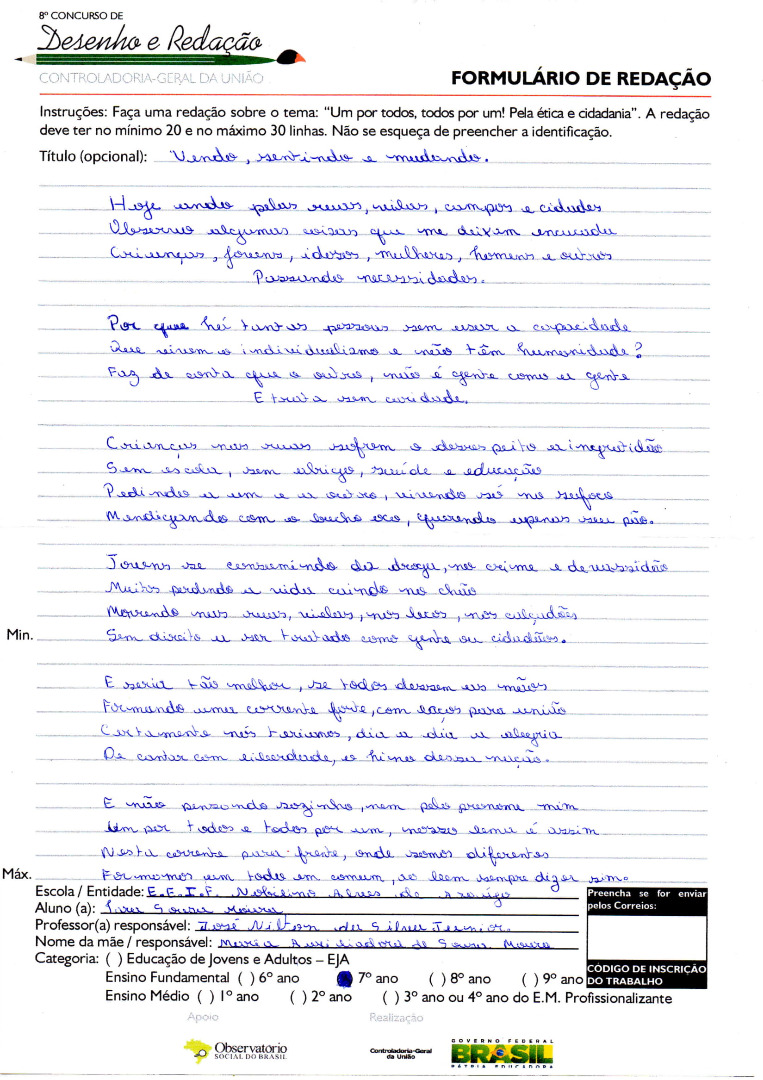 8º CONCURSO DE
Desenho e Redação
CONTROLADORIA-GERAL DA UNIÃO
FORMULÁRIO DE REDAÇÃO
Instruções: Faça uma redação sobre o tema: "Um por todos, todos por um! Pela ética e cidadania". A redação
deve ter no mínimo 20 e no máximo 30 linhas. Não se esqueça de preencher a identificação.
Título (opcional): Vendo, sentindo e mudando.
Hoje ando pelas ruas, vilas, campos e cidades
Observo algumas coisas que me deixam encucada
Crianças, jovens, idosos, mulheres, homens e outros
Passando necessidades.
Por que há tantas pessoas sem usar a capacidade
Que vivem o individualismo e não têm humanidade?
Faz de conta que o outro, não é gente como a gente
E trata sem caridade.
Crianças nas ruas sofrem o desrespeito a ingratidão
Sem escola, sem abrigo, saúde e educação
Pedindo a um e a outro, vivendo só no sufoco
Mendigando com o bucho oco, querendo apenas seu pão.
Jovens se consumindo da droga, no crime e devassidão
Muitos perdendo a vida caindo no chão
Morrendo nas ruas, vielas, nos becos, nos calçadões
Min. Sem direito a ser tratado como gente ou cidadãos.
E seria tão melhor, se todos dessem as mãos
Formando uma corrente forte, com laços para união
Certamente nós teríamos, dia a dia a alegria
De cantar com liberdade, o hino dessa nação.
E não pensando sozinho, nem pelo pronome mim
Um por todos e todos por um, nosso lema é assim
Nesta corrente para frente, onde somos diferentes
Máx. Formemos um todo em comum, ao bem sempre dizer sim.
Escola / Entidade: E.E.I.F. Nobilino Alves de Araújo
Aluno (a): Sousa Moura
Professor(a) responsável: José Nilton da Silva Junior.
Nome da mãe / responsável: Maria Auxiliadora de Sousa Moura
Categoria: ( ) Educação de Jovens e Adultos – EJA
Ensino Fundamental ( ) 6º ano ( ) 7º ano ( ) 8º ano ( ) 9º ano
Ensino Médio ( ) 1º ano ( ) 2º ano ( ) 3º ano ou 4º ano do E.M. Profissionalizante
Preencha se for enviar
pelos Correios:
CÓDIGO DE INSCRIÇÃO
DO TRABALHO
Apoio
Realização
Observatório
SOCIAL DO BRASIL
Controladoria-Geral
da União
GOVERNO FEDERAL
BRASIL
PÁTRIA EDUCADORA